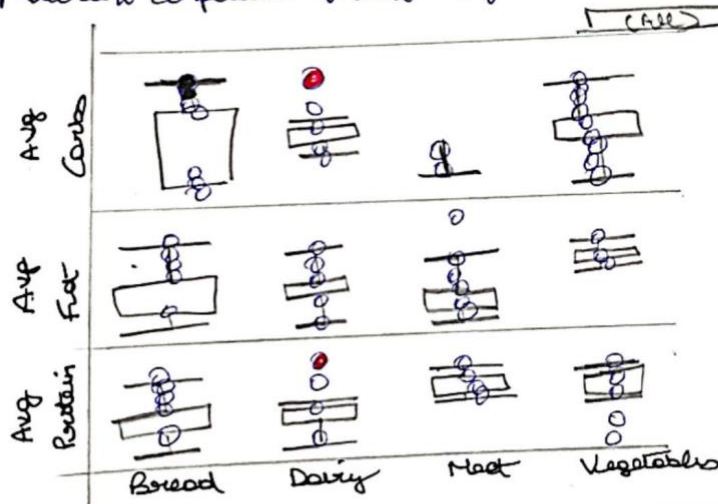 (All)
Avg
Carbs
Avg
Fat
Avg
Protein
Bread Dairy Meat Vegetables